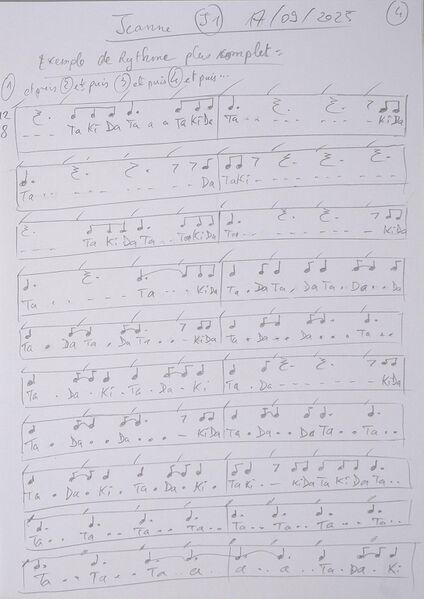 Jeanne S1 17/09/2025 4
Exemple de Rythme plus complet =
1 et puis 2 et puis 3 et puis 4 et puis...
12
8
- - - Ta Ki Da Ta a a Ta Ki Da Ta - - - - - - - - - - KiDa
Ta - - - - - - - - - - Da TaKi - - - - - - - - - -
- - - Ta Ki Da Ta - - Ta Ki Da Ta - - - - - - - - KiDa
Ta . . - - - Ta - - KiDa Ta . Da Ta . Da Ta . Da . . Da
Ta . Da Ta . Da Ta . . - KiDa Ta . Da . . Da . . Ta . .
Ta . Da . Ki . Ta . Da . Ki Ta . Da - - - - - - - KiDa
Ta . Da . . Da . . - KiDa Ta . Da . . Da Ta . . Ta . .
Ta . Da . Ki . Ta . Da . Ki . TaKi . - KiDa Ta Ki Da Ta . .
Ta . . Ta . . Ta . . Ta . . Ta . . Ta . . Ta . . Ta . .
Ta . . Ta . . Ta . . a . . a . . a . . Ta . Da . Ki